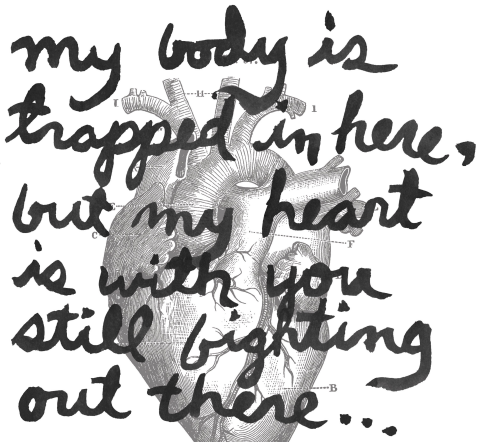 my body is
trapped in here,
but my heart
is with you
still fighting
out there...
H
I
I
E
C
F
B